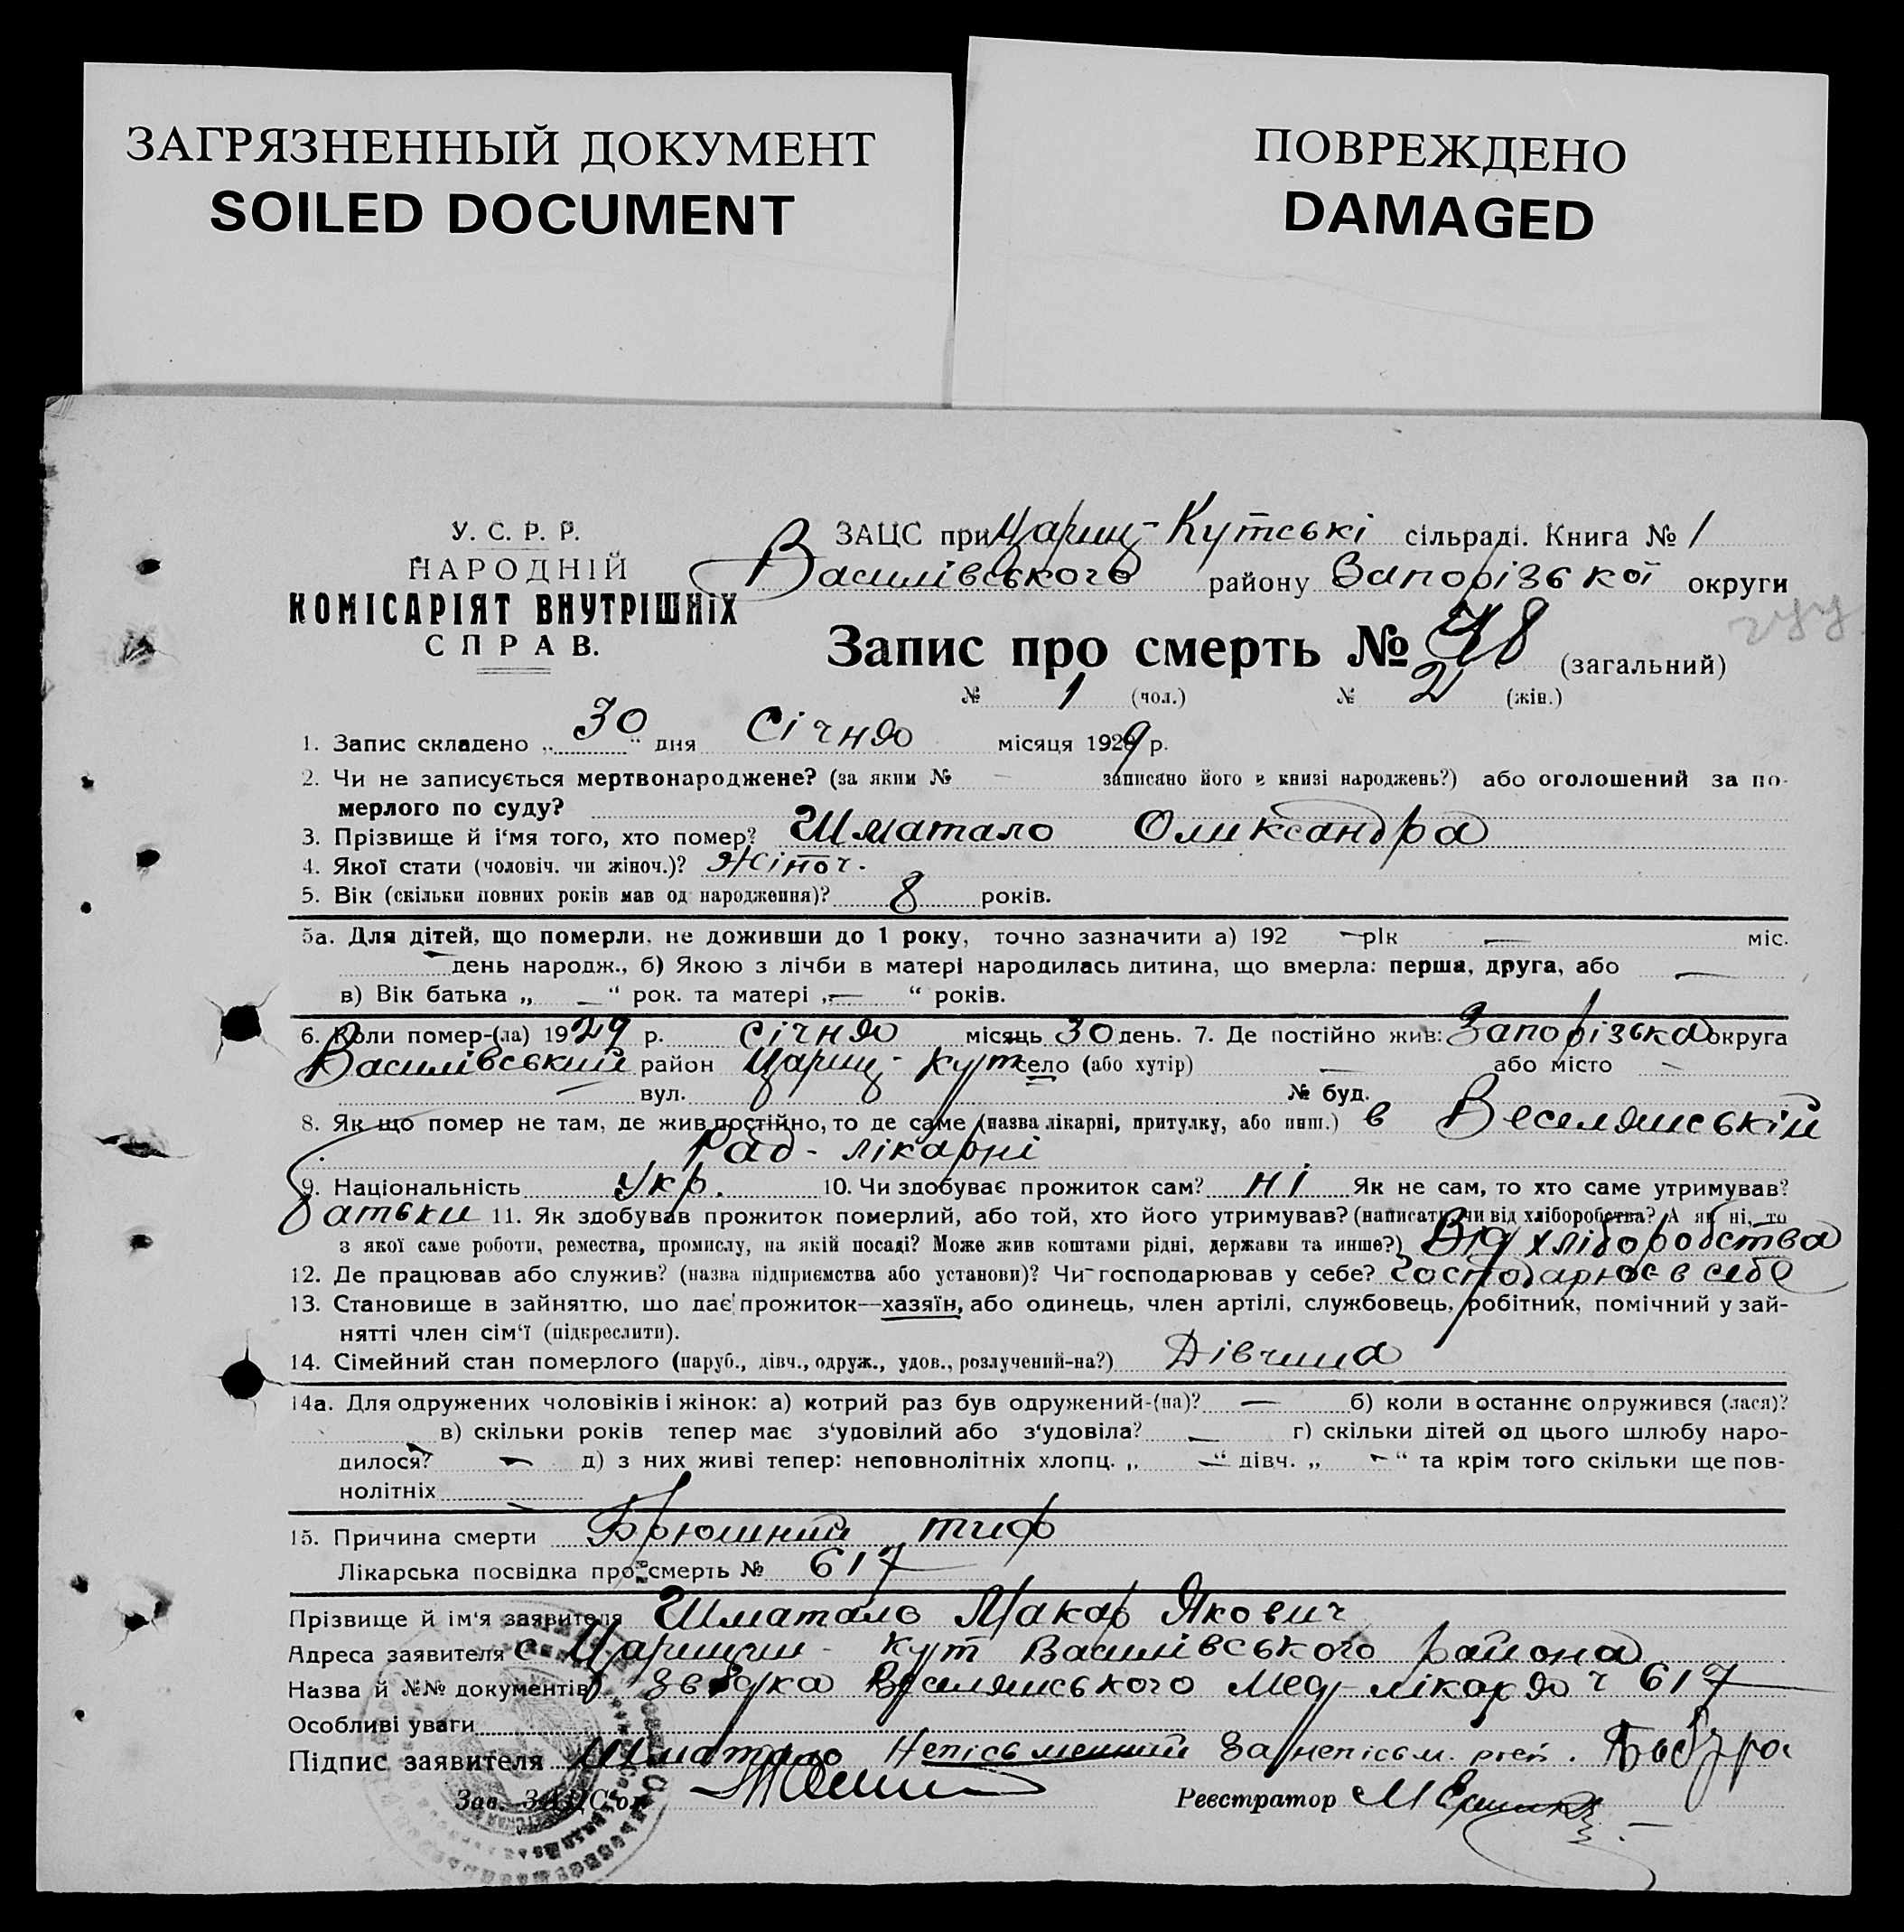 ЗАГРЯЗНЕННЫЙ ДОКУМЕНТ
SOILED DOCUMENT
ПОВРЕЖДЕНО
DAMAGED
У. С. Р. Р.
НАРОДНІЙ
КОМІСАРІЯТ ВНУТРІШНІХ
СПРАВ.
ЗАЦС при Цариц-Кутські сільраді. Книга № 1
Василівського району Запорізької округи
Запис про смерть № 8 (загальний)
№ 1 (чол.) № 2 (жін.)
1. Запис складено „30“ дня Січня місяця 1929 р.
2. Чи не записується мертвонароджене? (за яким № – записано його в книзі народжень?) або оголошений за по-
мерлого по суду?
3. Прізвище й і'мя того, хто помер? Шматало Оликсандра
4. Якої стати (чоловіч. чи жіноч.)? Жіноч.
5. Вік (скільки повних років мав од народження)? 8 років.
5а. Для дітей, що померли, не доживши до 1 року, точно зазначити а) 192 – рік – міс.
– день народж., б) Якою з лічби в матері народилась дитина, що вмерла: перша, друга, або –
в) Вік батька „ – “ рок. та матері „ – “ років.
6. Коли помер-(ла) 1929 р. січня місяць 30 день. 7. Де постійно жив: Запорізька округа
Василівський район Цариц-Кут село (або хутір) – або місто –
– вул. № буд.
8. Як що помер не там, де жив постійно, то де саме (назва лікарні, притулку, або инш.) в Веселянській
Рад-лікарні
9. Національність Укр. 10. Чи здобуває прожиток сам? ні Як не сам, то хто саме утримував?
батьки 11. Як здобував прожиток померлий, або той, хто його утримував? (написати, чи від хліборобства? А як ні, то
з якої саме роботи, ремества, промислу, на якій посаді? Може жив коштами рідні, держави та инше?) Від хліборобства
12. Де працював або служив? (назва підприємства або установи)? Чи господарював у себе? Господарює в себе
13. Становище в зайняттю, що дає прожиток—хазяїн, або одинець, член артілі, службовець, робітник, помічний у зай-
нятті член сім'ї (підкреслити).
14. Сімейний стан померлого (паруб., дівч., одруж., удов., розлучений-на?) Дівчина
14а. Для одружених чоловіків і жінок: а) котрий раз був одружений-(на)? – б) коли востаннє одружився (лася)?
в) скільки років тепер має з'удовілий або з'удовіла? – г) скільки дітей од цього шлюбу наро-
дилося? – д) з них живі тепер: неповнолітніх хлопц. „ – “ дівч. „ – “ та крім того скільки ще пов-
нолітніх
15. Причина смерти Брюшний тиф
Лікарська посвідка про смерть № 617
Прізвище й ім'я заявителя Шматало Макар Якович
Адреса заявителя с Царицин-Кут Василівського района
Назва й №№ документів Звідка Веселянського Мед-лікаря ч 617
Особливі уваги
Підпис заявителя Шматало Неписьменний За неписьм.
Зав. ЗАЦС'ом
Реєстратор М